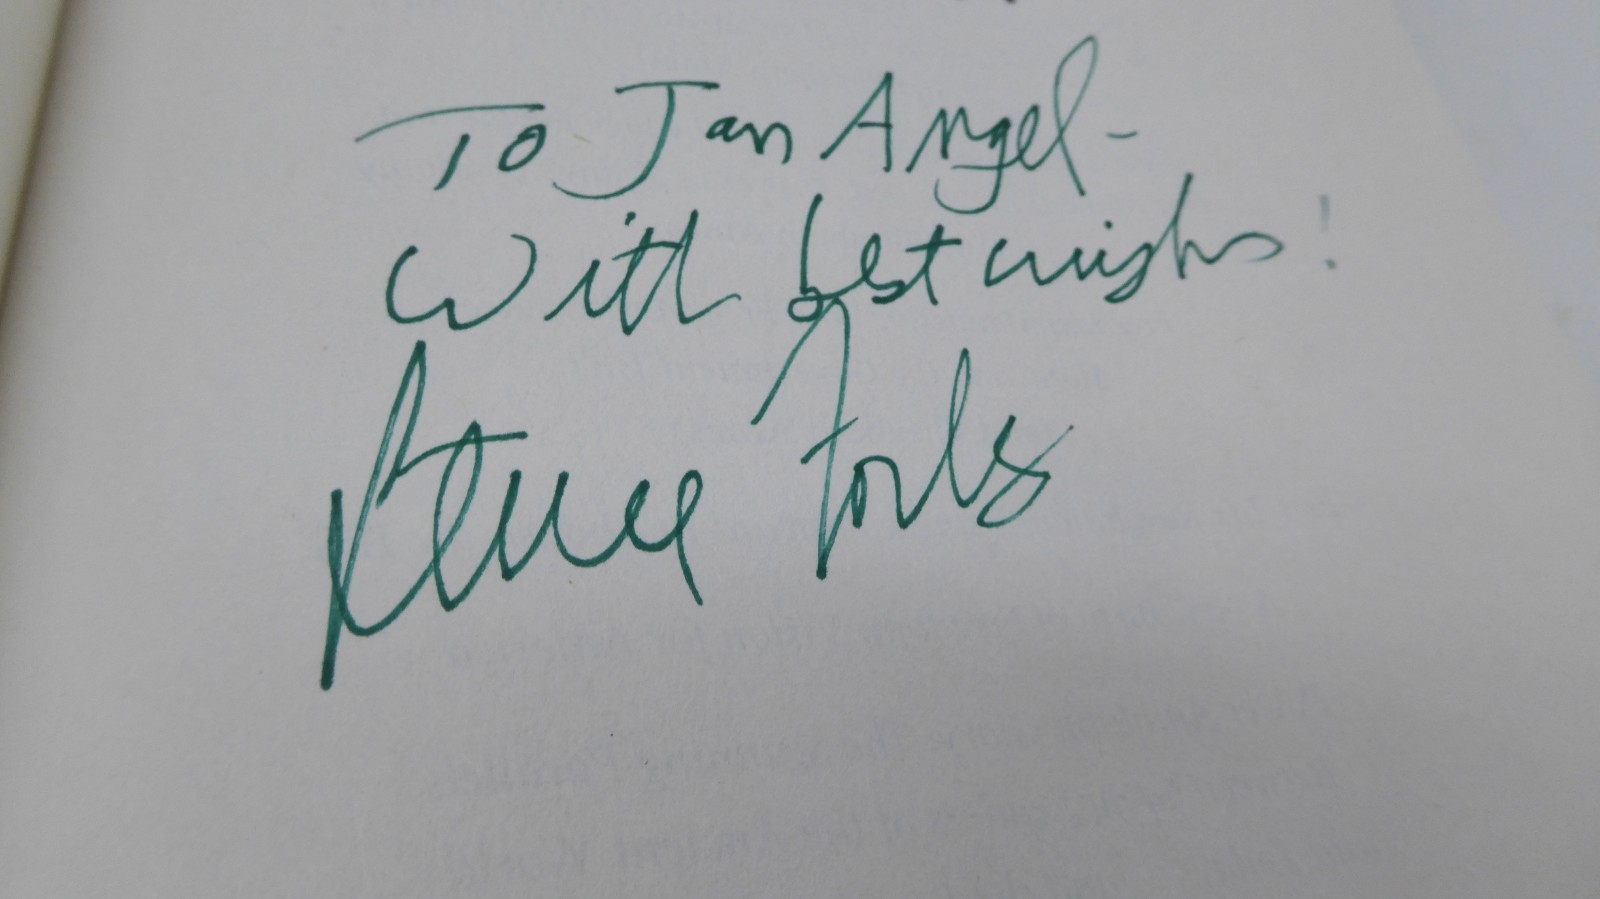 To Jan Angel-
With best wishes!
Steve Forbes